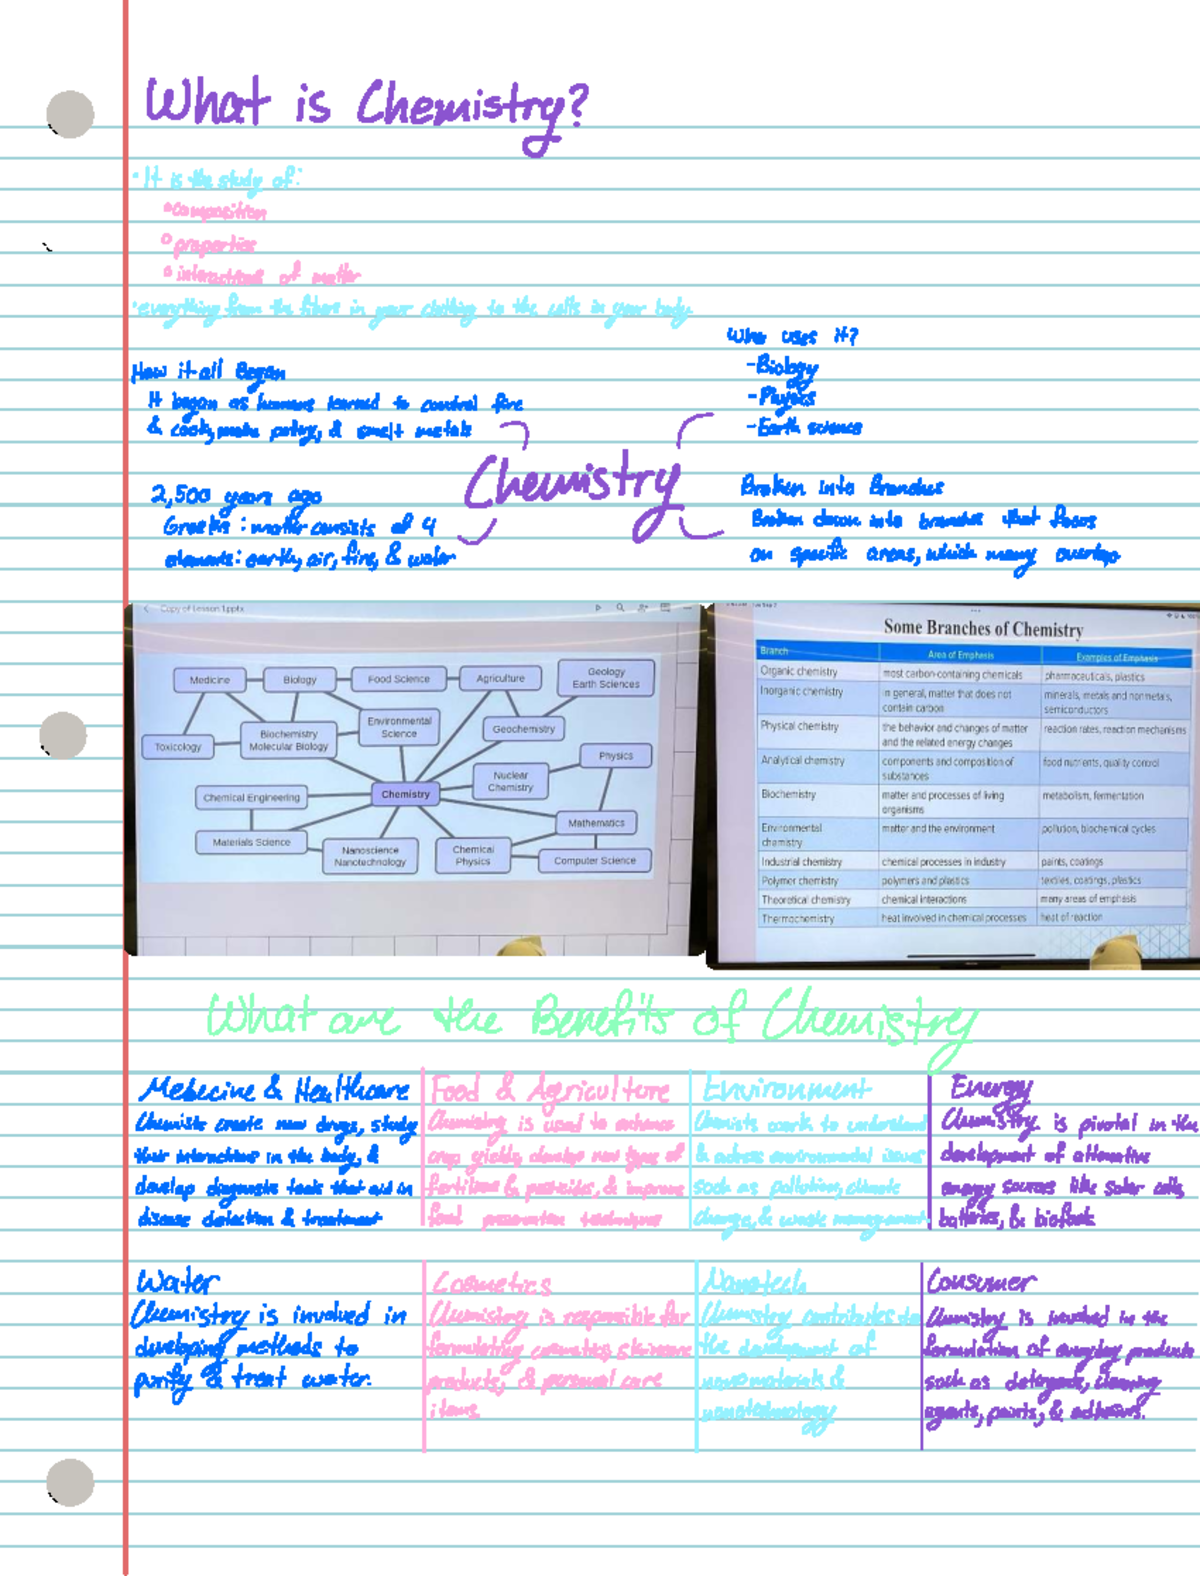 What is Chemistry?
• It is the study of:
• composition
° properties
• interactions of matter
• everything from the fibers in your clothing to the cells in your body
Who uses it?
- Biology
- Physics
- Earth science
How it all Began
It began as humans learned to control fire
& cook, make pottery, & smelt metals
Chemistry
2,500 years ago
Greeks: matter consists of 4
elements: earth, air, fire, & water
Broken into Branches
Broken down into branches that focus
on specific areas, which many overlap
Copy of Lesson 1.pptx
Medicine
Biology
Food Science
Agriculture
Geology
Earth Sciences
Toxicology
Biochemistry
Molecular Biology
Environmental
Science
Geochemistry
Physics
Nuclear
Chemistry
Chemical Engineering
Chemistry
Mathematics
Materials Science
Nanoscience
Nanotechnology
Chemical
Physics
Computer Science
Some Branches of Chemistry
Branch Area of Emphasis Examples of Emphasis
Organic chemistry most carbon-containing chemicals pharmaceuticals, plastics
Inorganic chemistry in general, matter that does not minerals, metals and nonmetals,
contain carbon semiconductors
Physical chemistry the behavior and changes of matter reaction rates, reaction mechanisms
and the related energy changes
Analytical chemistry components and composition of food nutrients, quality control
substances
Biochemistry matter and processes of living metabolism, fermentation
organisms
Environmental matter and the environment pollution, biochemical cycles
chemistry
Industrial chemistry chemical processes in industry paints, coatings
Polymer chemistry polymers and plastics textiles, coatings, plastics
Theoretical chemistry chemical interactions many areas of emphasis
Thermochemistry heat involved in chemical processes heat of reaction
What are the Benefits of Chemistry
Medecine & Healthcare
Chemists create new drugs, study
their interactions in the body, &
develop diagnostic tools that aid in
disease detection & treatment
Food & Agriculture
Chemistry is used to enhance
crop yields, develop new types of
fertilizers & pesticides, & improve
food preservation techniques
Environment
Chemists work to understand
& adress environmental issues
such as pollution, climate
change, & waste management
Energy
Chemistry is pivotal in the
development of alternative
energy sources like solar cells,
batteries, & biofuels
Water
Chemistry is involved in
developing methods to
purify & treat water.
Cosmetics
Chemistry is responsible for
formulating cosmetics, skincare
products, & personal care
items
Nanotech
Chemistry contributes to
the development of
nanomaterials &
nanotechnology
Consumer
Chemistry is involved in the
formulation of everyday products
such as detergents, cleaning
agents, paints, & adhesives.